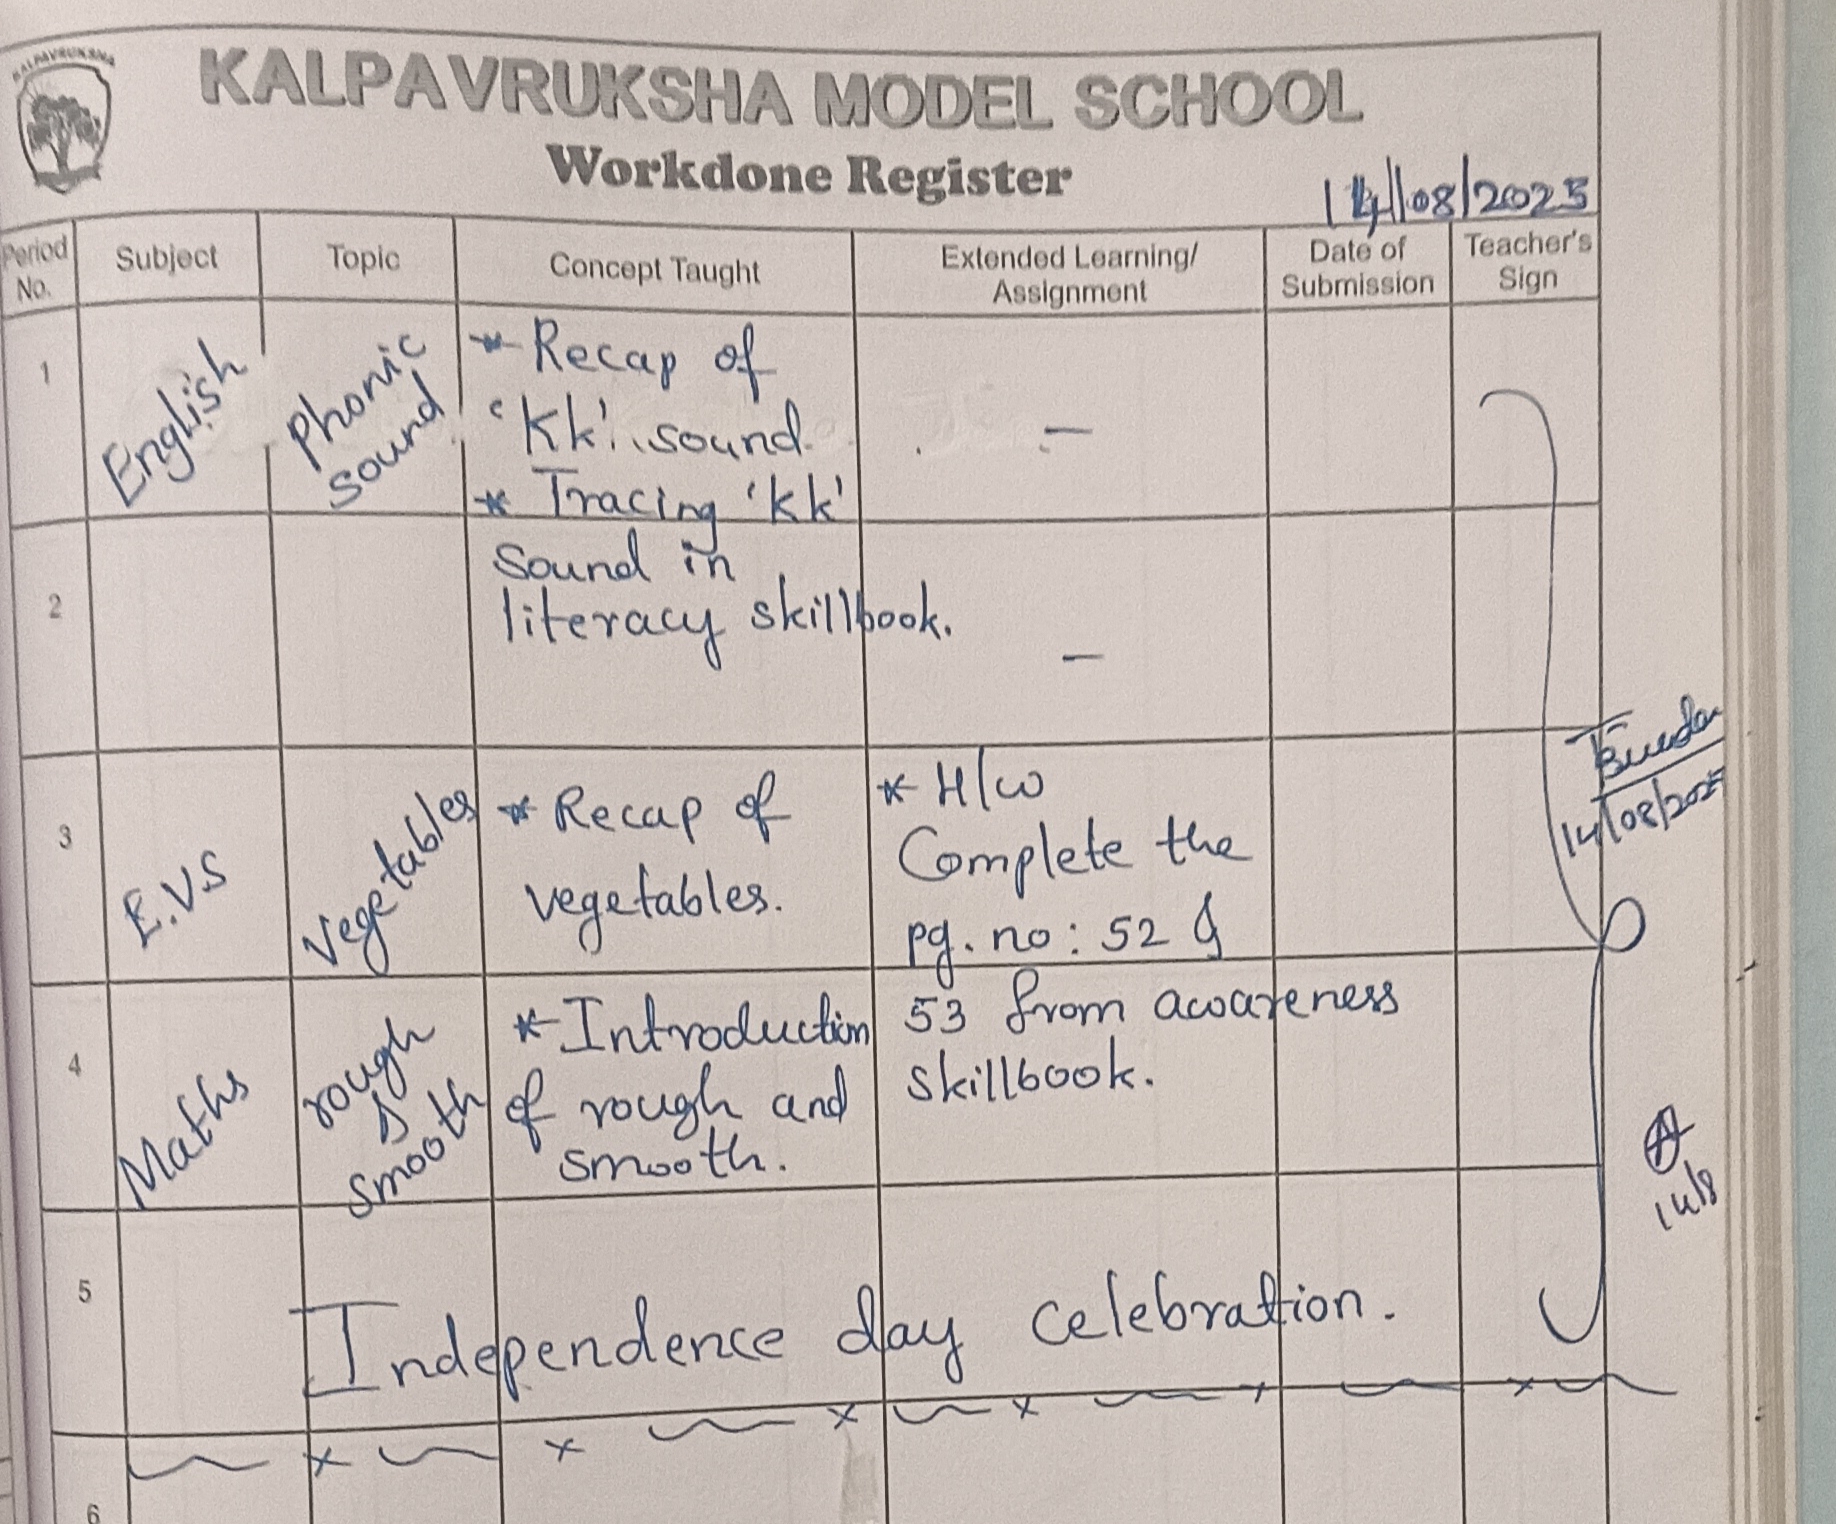 KALPAVRUKSHA
KALPAVRUKSHA MODEL SCHOOL
Workdone Register
14/08/2025
Period No. Subject Topic Concept Taught Extended Learning/ Assignment Date of Submission Teacher's Sign
1
English
Phonic
sound
* Recap of
'Kk' sound.
* Tracing 'kk'
sound in
literacy skillbook.
-
2
-
3
E.V.S
Vegetables
* Recap of
vegetables.
* H/w
Complete the
pg. no: 52 &
53 from awareness
skillbook.
14/08/2025
4
Maths
rough
&
smooth
* Introduction
of rough and
smooth.
14/8
5
Independence day celebration.
6